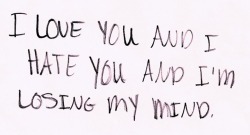 I LOVE YOU AND I
HATE YOU AND I'M
LOSING MY MIND.